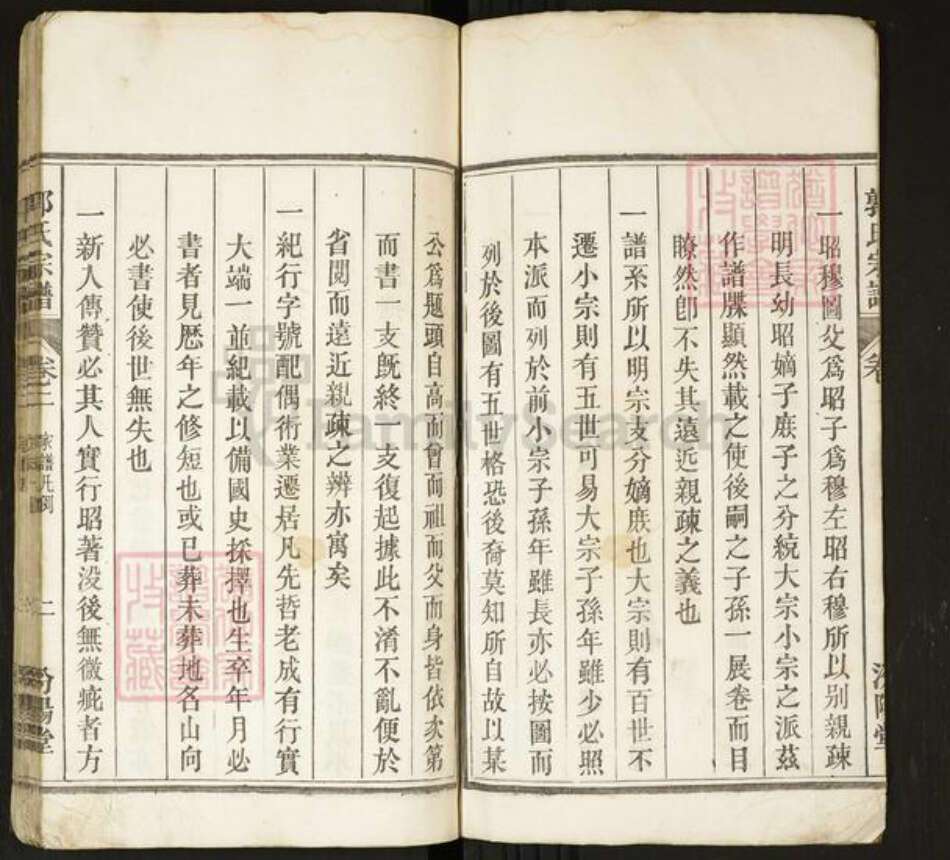 郭氏宗譜
卷
汾陽堂
一昭穆圖父爲昭子爲穆左昭右穆所以别親疎
明長幼昭嫡子庶子之分統大宗小宗之派茲
作譜牒顯然載之使後嗣之子孫一展卷而目
瞭然卽不失其遠近親疎之義也
一譜系所以明宗支分嫡庶也大宗則有百世不
遷小宗則有五世可易大宗子孫年雖少必照
本派而列於前小宗子孫年雖長亦必按圖而
列於後圖有五世格恐後裔莫知所自故以某
公爲題頭自高而曾而祖而父而身皆依次第
而書一支既終一支復起據此不淆不亂便於
省閱而遠近親疎之辨亦寓矣
一紀行字號配偶術業遷居凡先哲老成有行實
大端一並紀載以備國史採擇也生卒年月必
書者見歷年之修短也或已葬未葬地名山向
必書使後世無失也
一新入傳贊必其人實行昭著没後無微疵者方
郭氏宗譜
卷二
家譜凡例
二
汾陽堂
FamilySearch